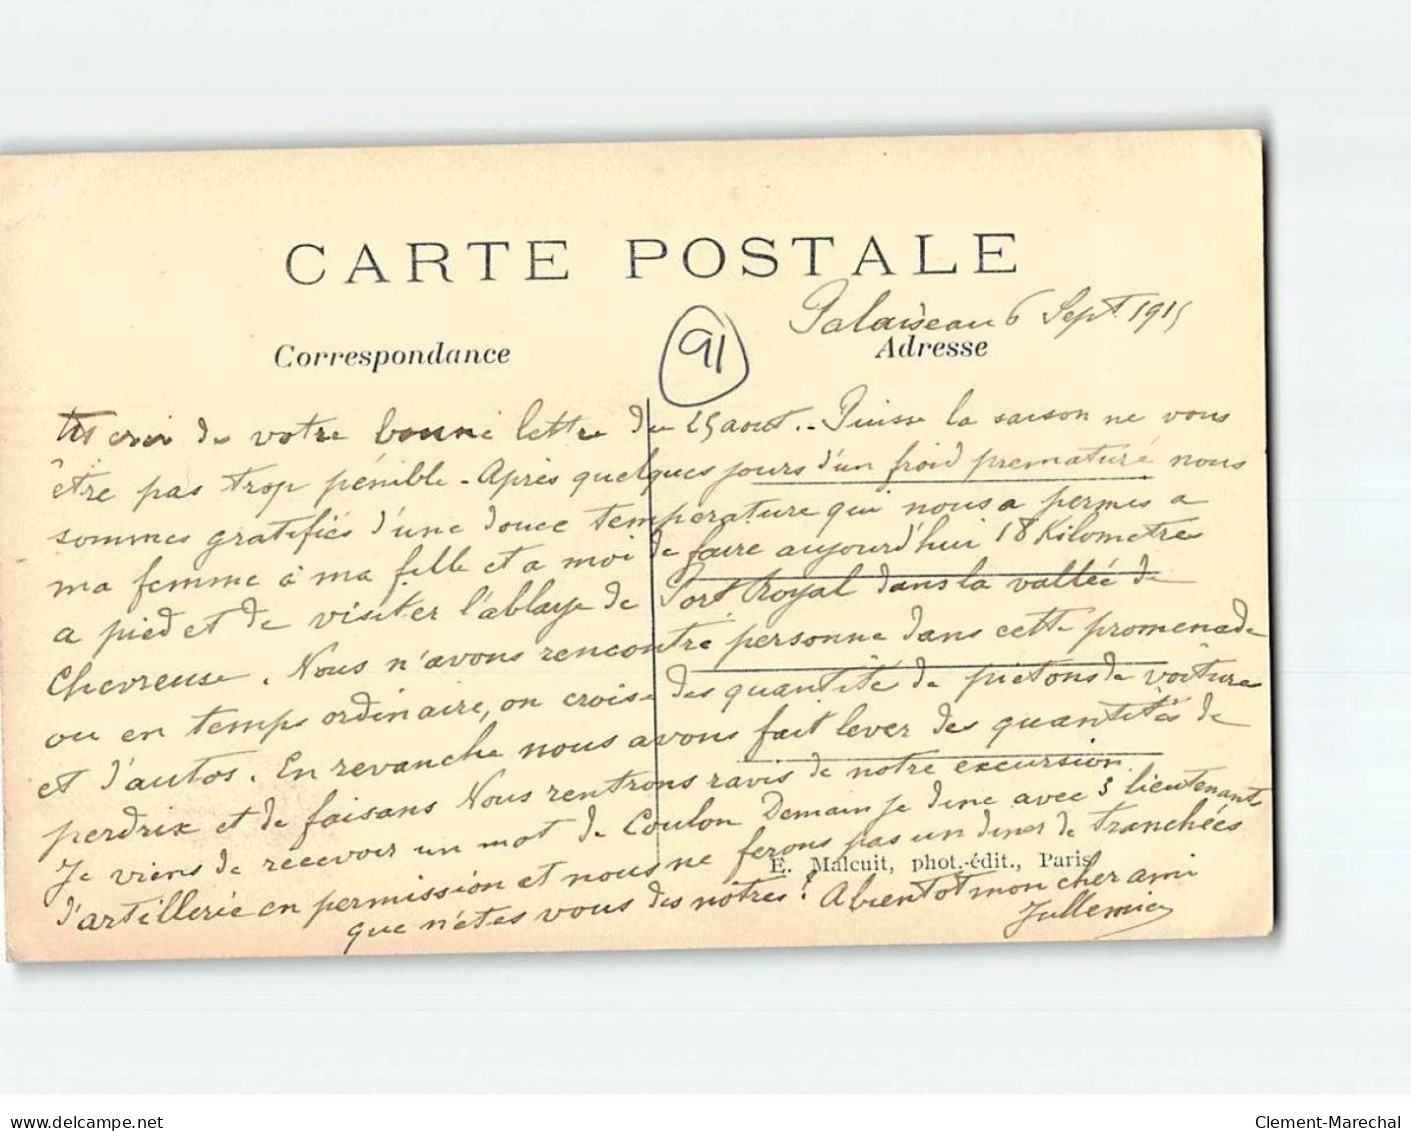 CARTE POSTALE
Palaiseau 6 Sept 1915
Correspondance
91
Adresse
de votre bonne lettre du 25 aout.. Puisse la saison ne vous
être pas trop pénible. Après quelques jours d'un froid prematuré nous
sommes gratifiés d'une douce température qui nous a permis a
ma femme a ma fille et a moi de faire aujourd'hui 18 Kilometres
a pied et de visiter l'abbaye de Port Royal dans la vallée de
Chevreuse. Nous n'avons rencontré personne dans cette promenade
ou en temps ordinaire, on croise des quantité de piétons de voiture
et d'autos. En revanche nous avons fait lever des quantités de
perdrix et de faisans Nous rentrons ravis de notre excursion
Je viens de recevoir un mot de Coulon Demain je dine avec 3 lieutenants
d'artillerie en permission et nous ne ferons pas un diner de tranchées
E. Malcuit, phot.-édit., Paris
que n'êtes vous des nôtres! A bientot mon cher ami
Clement-Marechal
www.delcampe.net